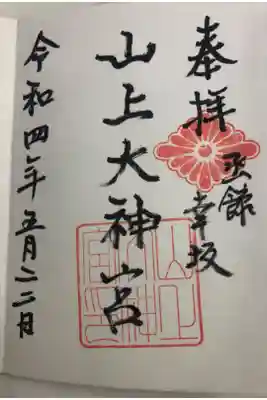 奉拝
函館
幸坂
山上大神宮
令和四年五月二二日